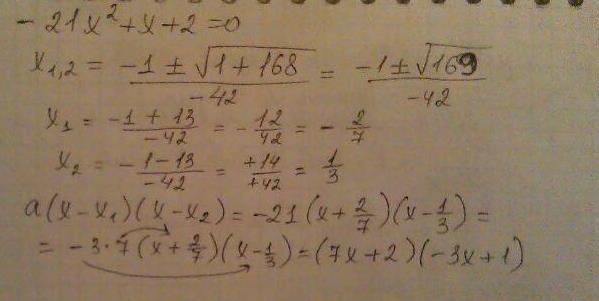 - 21x² + x + 2 = 0
x₁,₂ = (-1 ± √(1 + 168)) / -42 = (-1 ± √169) / -42
x₁ = (-1 + 13) / -42 = - 12/42 = - 2/7
x₂ = (-1 - 13) / -42 = +14/+42 = 1/3
a(x - x₁)(x - x₂) = -21(x + 2/7)(x - 1/3) =
= -3 · 7(x + 2/7)(x - 1/3) = (7x + 2)(-3x + 1)